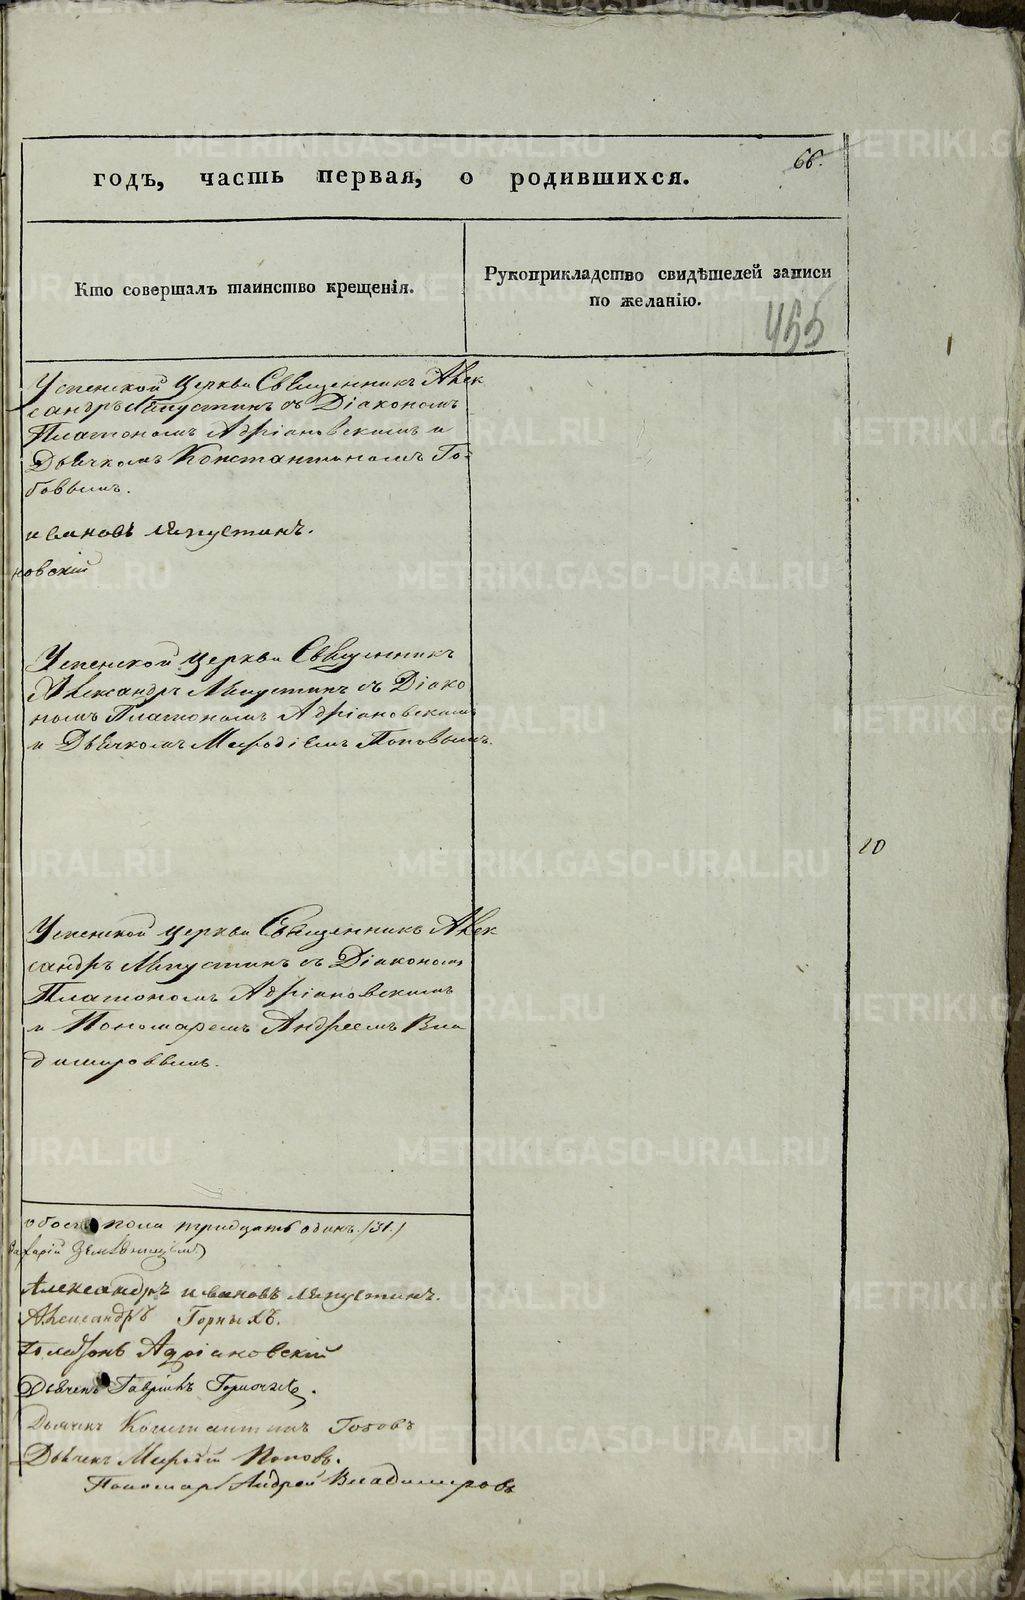 66.
годъ, часть первая, о родившихся.
Кто совершалъ таинство крещенія.
Рукоприкладство свидѣтелей записи
по желанію.
455
Успенской церкви Священникъ Алек
сандръ Мѣпустинъ съ Діакономъ
Платономъ Адріановскимъ и
Дьячкомъ Константиномъ То-
боевымъ.
ивановъ
новскій
Успенской церкви Священникъ
Александръ съ Діако
номъ Платономъ Адріановскимъ
и Дьячкомъ Мефодіемъ Поповымъ.
10
Успенской церкви Священникъ Алек
сандръ съ Діакономъ
Платономъ Адріановскимъ
и Пономаремъ Андреемъ Вла
димировымъ.
обоего пола тридцать одинъ /31./
Александръ ивановъ
Александръ Горныхъ.
Платонъ Адріановскій
Дьячекъ Гавріилъ
Дьячекъ Константинъ
Дьячекъ Мефодій Поповъ.
Пономарь Андрей Владимировъ
METRIKI.GASO-URAL.RU